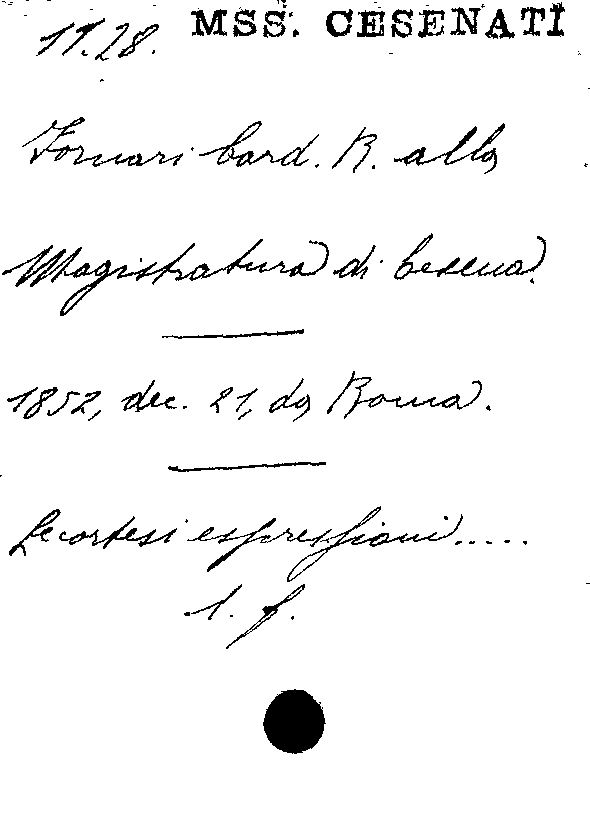 11.28. MSS. CESENATI
Fornari Card. R. alla
Magistratura di Cesena.
1852, dec. 21, da Roma.
Le cortesi espressioni.....
1. f.